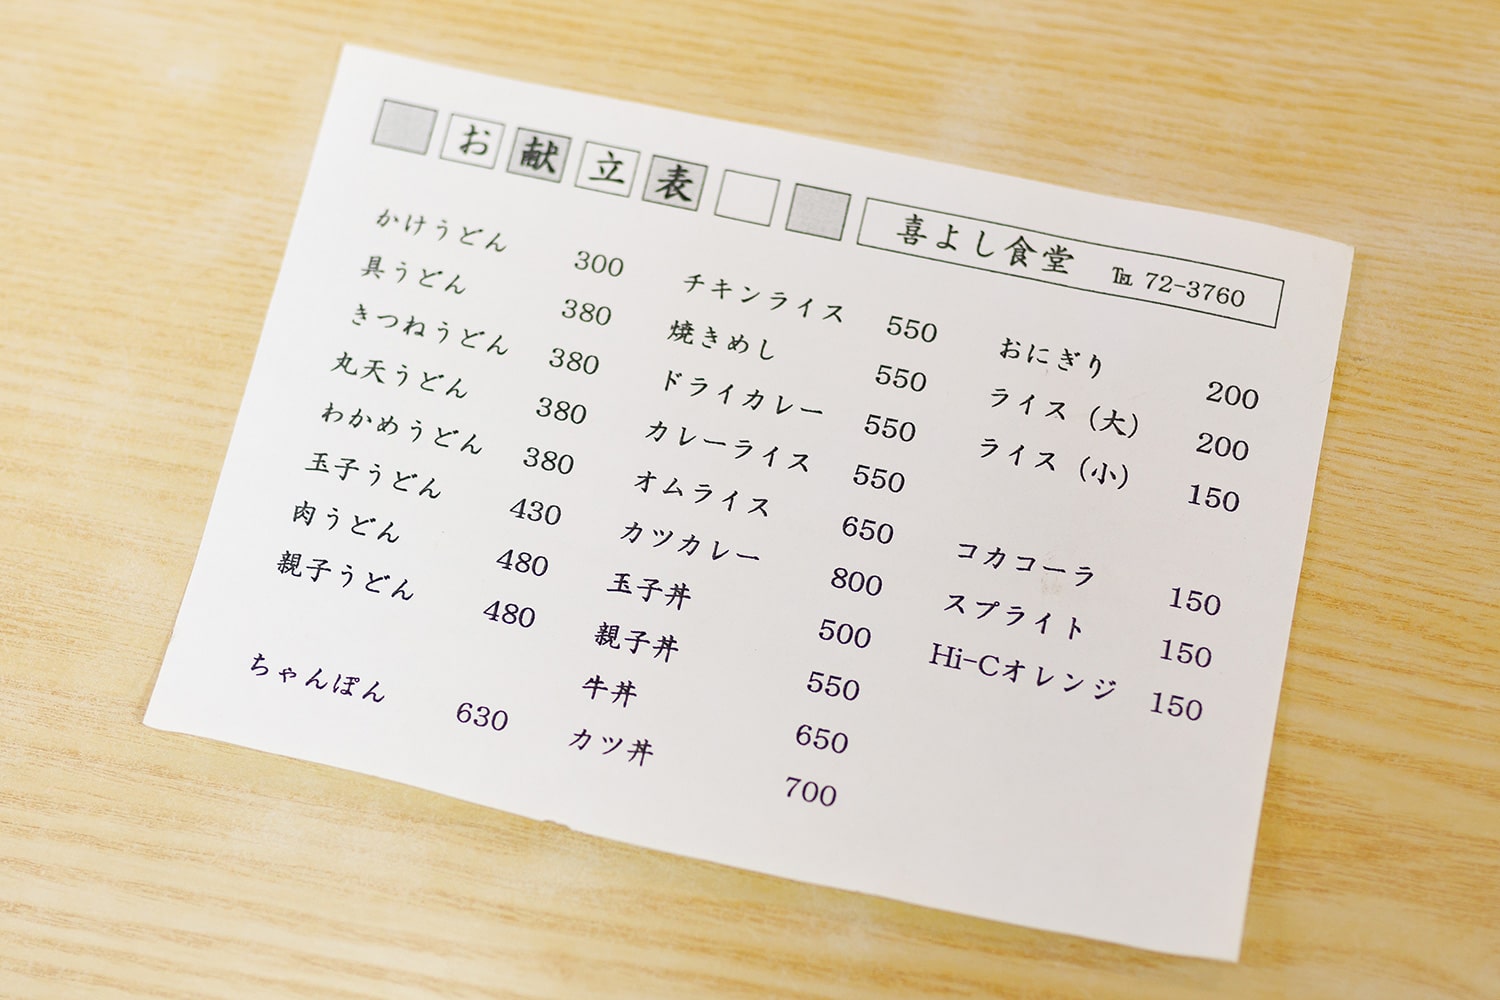 お献立表
喜よし食堂 ℡ 72-3760
かけうどん 300
具うどん 380
きつねうどん 380
丸天うどん 380
わかめうどん 380
玉子うどん 430
肉うどん 480
親子うどん 480
ちゃんぽん 630
チキンライス 550
焼きめし 550
ドライカレー 550
カレーライス 550
オムライス 650
カツカレー 800
玉子丼 500
親子丼 550
牛丼 650
カツ丼 700
おにぎり 200
ライス（大） 200
ライス（小） 150
コカコーラ 150
スプライト 150
Hi-Cオレンジ 150